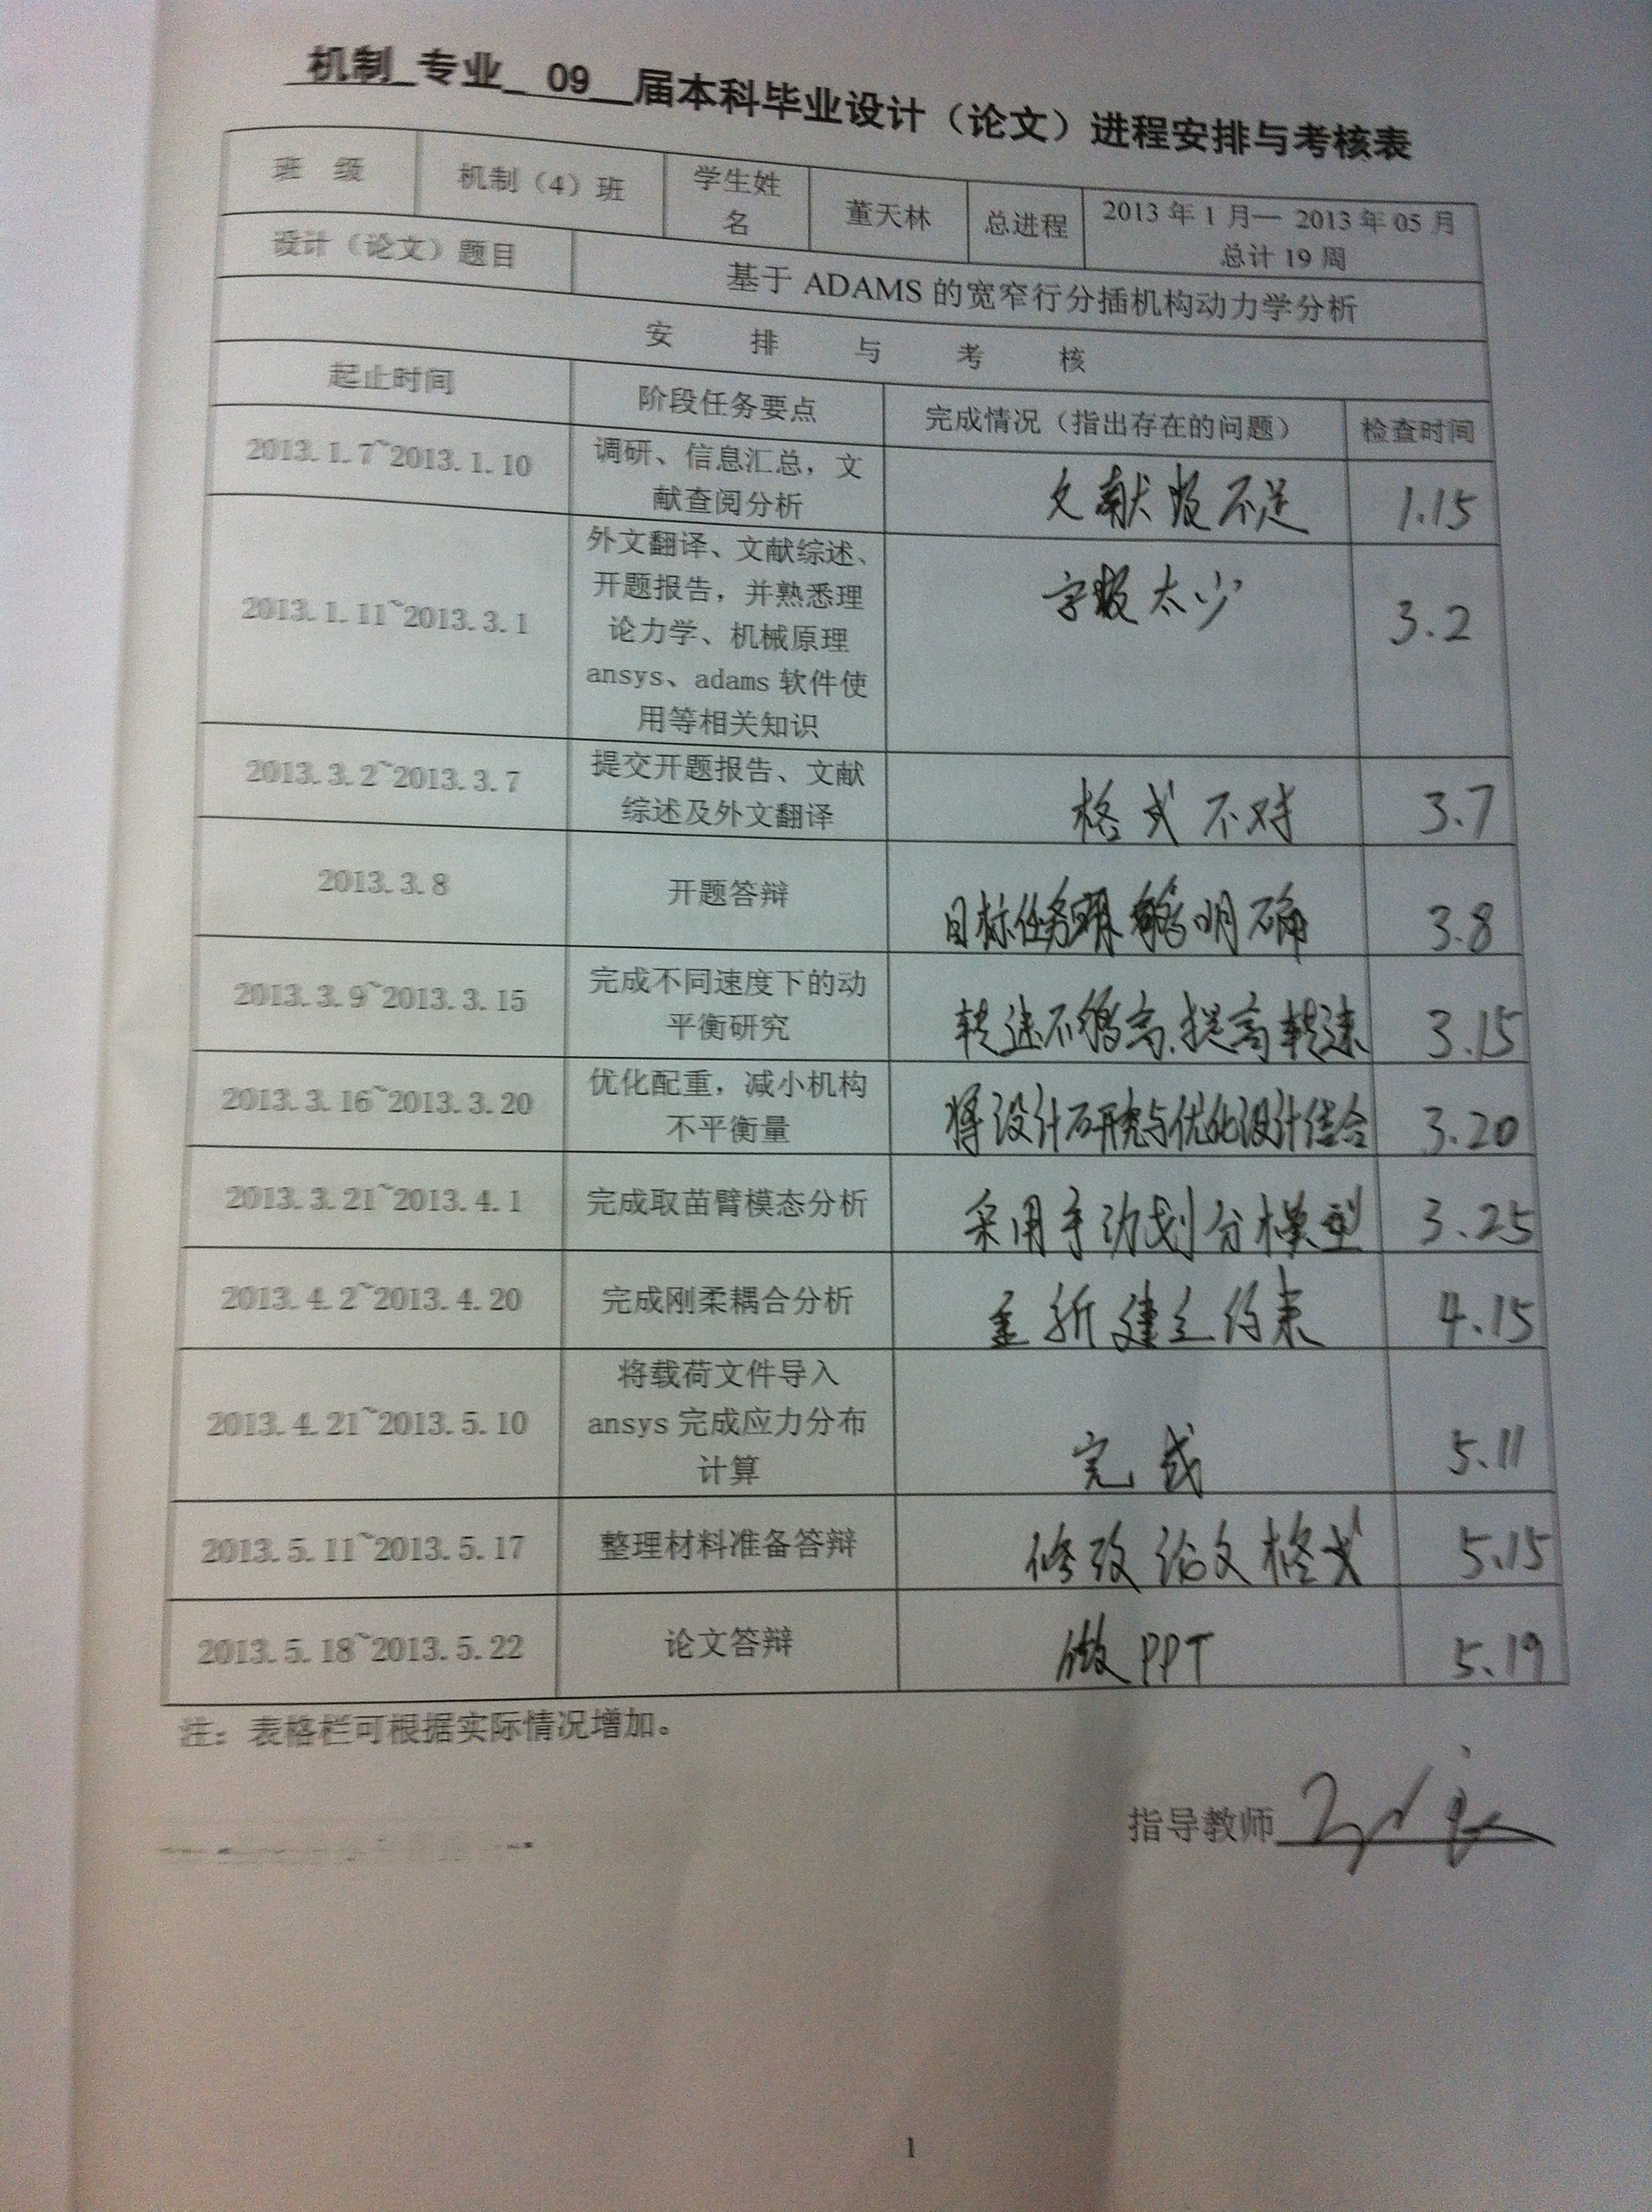 机制 专业 09 届本科毕业设计（论文）进程安排与考核表
班 级 机制（4）班 学生姓名 董天林 总进程 2013 年 1 月— 2013 年 05 月
总计 19 周
设计（论文）题目 基于 ADAMS 的宽窄行分插机构动力学分析
安 排 与 考 核
起止时间 阶段任务要点 完成情况（指出存在的问题） 检查时间
2013.1.7~2013.1.10 调研、信息汇总，文
献查阅分析 文献数不足 1.15
2013.1.11~2013.3.1 外文翻译、文献综述、
开题报告，并熟悉理
论力学、机械原理
ansys、adams 软件使
用等相关知识 字数太少 3.2
2013.3.2~2013.3.7 提交开题报告、文献
综述及外文翻译 格式不对 3.7
2013.3.8 开题答辩 目标任务 明确 3.8
2013.3.9~2013.3.15 完成不同速度下的动
平衡研究 转速不够高.提高转速 3.15
2013.3.16~2013.3.20 优化配重，减小机构
不平衡量 将设计研究与优化设计结合 3.20
2013.3.21~2013.4.1 完成取苗臂模态分析 采用手动划分模型 3.25
2013.4.2~2013.4.20 完成刚柔耦合分析 重新建立约束 4.15
2013.4.21~2013.5.10 将载荷文件导入
ansys 完成应力分布
计算 完成 5.11
2013.5.11~2013.5.17 整理材料准备答辩 修改论文格式 5.15
2013.5.18~2013.5.22 论文答辩 做PPT 5.19
注：表格栏可根据实际情况增加。
指导教师
1